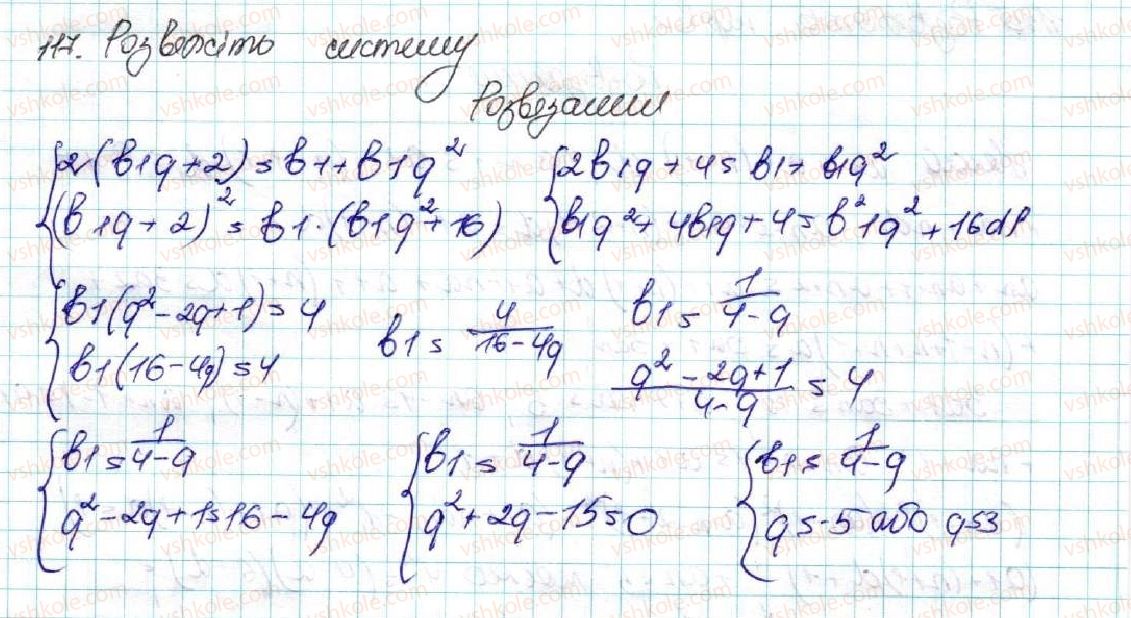 117. Розвяжіть систему
Розвезання
{2(b1q+2)=b1+b1q²
{(b1q+2)²=b1·(b1q²+16)
{2b1q+4=b1+b1q²
{b1q²+4b1q+4=b²1q²+16
{b1(q²-2q+1)=4
{b1(16-4q)=4
b1=4/(16-4q)
b1=1/(4-q)
(q²-2q+1)/(4-q)=4
{b1=1/(4-q)
{q²-2q+1=16-4q
{b1=1/(4-q)
{q²+2q-15=0
{b1=1/(4-q)
{q=-5 або q=3